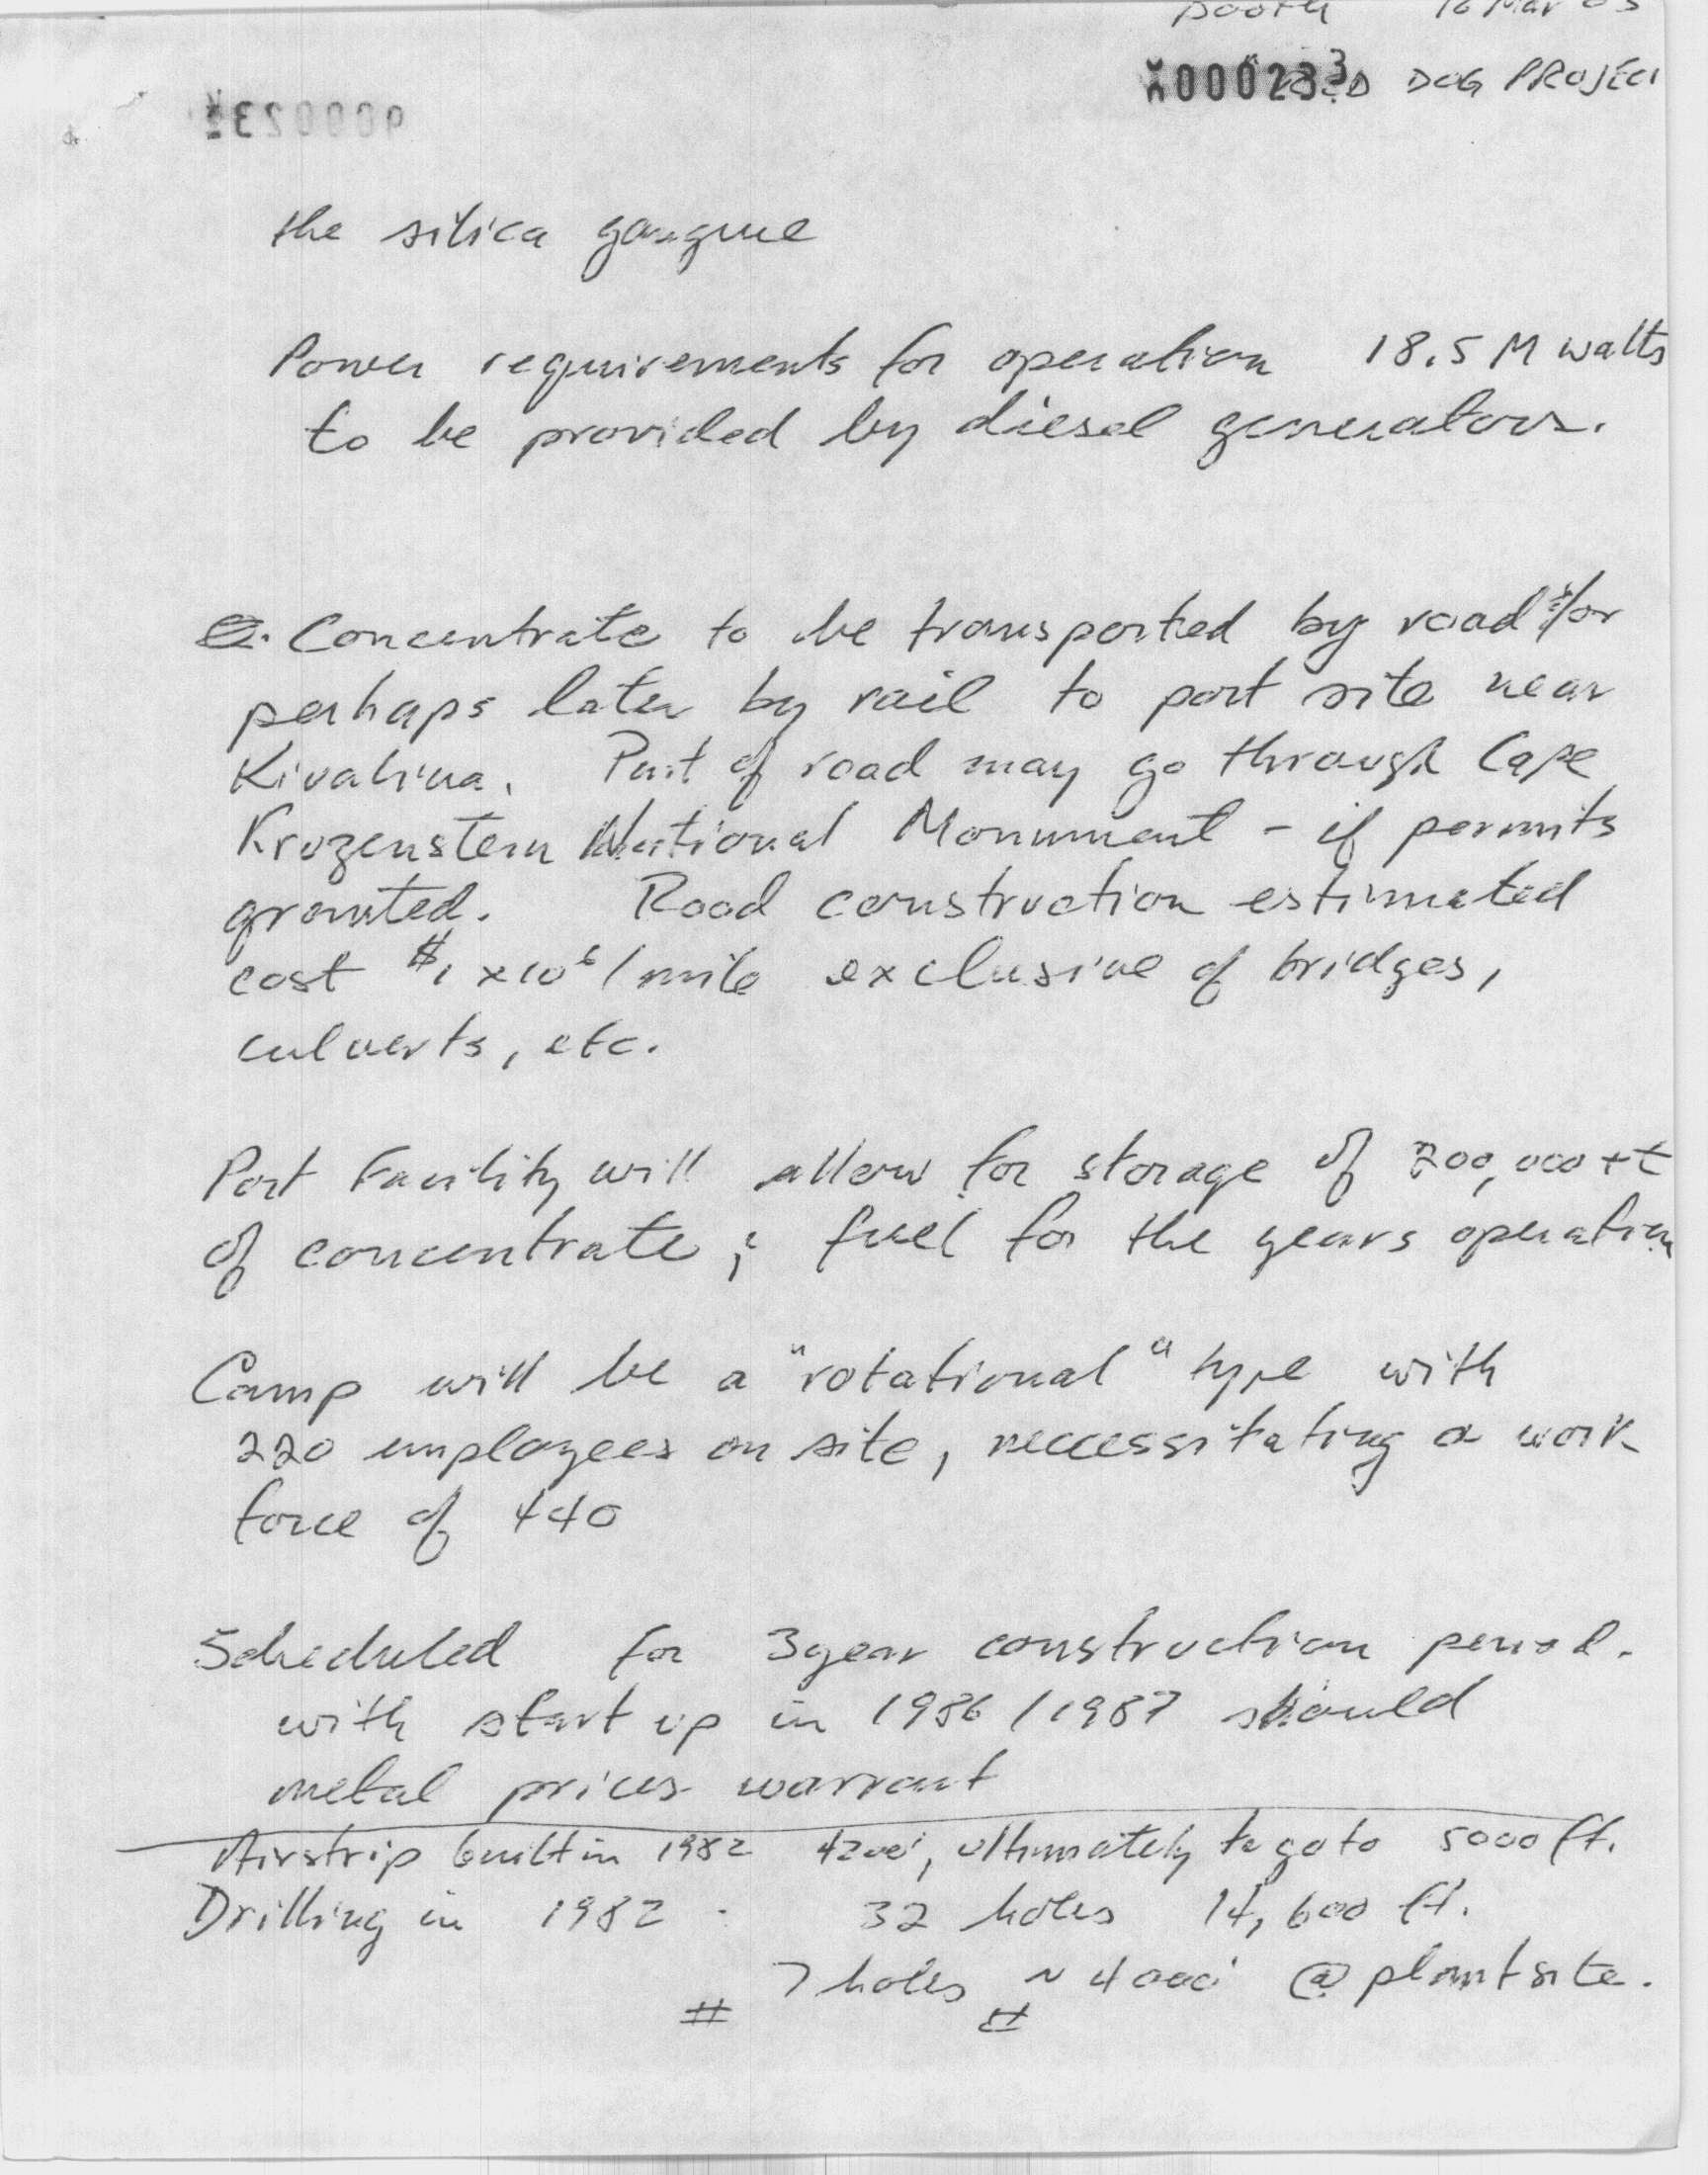 Booth 16 Mar 83
000233 RED DOG PROJECT
the silica gangue
Power requirements for operation 18.5 M watts
to be provided by diesel generators.
Concentrate to be transported by road &/or
perhaps later by rail to port site near
Kivalina. Part of road may go through Cape
Krozenstern National Monument - if permits
granted. Road construction estimated
cost $1 x10⁶/mile exclusive of bridges,
culverts, etc.
Port Facility will allow for storage of 200,000 + t
of concentrate; fuel for the years operation
Camp will be a "rotational" type with
220 employees on site, neccessitating a work
force of 440
Scheduled for 3 year construction period.
with start up in 1986/1987 should
metal prices warrant
Airstrip built in 1982 4200', ultimately to go to 5000 ft.
Drilling in 1982 - 32 holes 14,600 ft.
7 holes ~ 4000' @ plant site.
# #